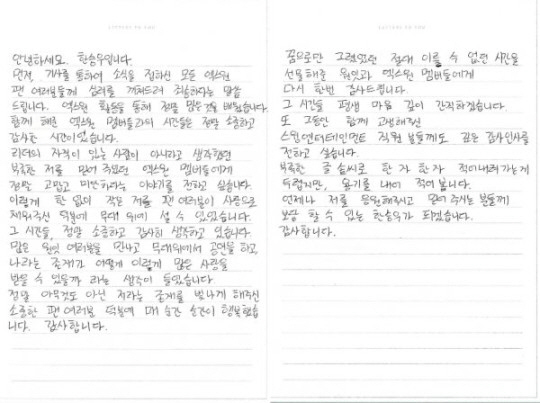 안녕하세요. 한승우입니다.
먼저 기사를 통하여 소식을 접하신 모든 엑스원
팬 여러분들께 심려를 끼쳐드려 죄송하다는 말씀
드립니다. 엑스원 활동을 통해 정말 많은것을 배웠습니다.
함께 해준 엑스원 멤버들과의 시간들은 정말 소중하고
감사한 시간이었습니다.
리더의 자격이 있는 사람이 아니라고 생각했던
부족한 저를 믿어 주었던 엑스원 멤버들에게
정말 고맙고 미안하다는 이야기를 전하고 싶습니다.
이렇게 한 없이 작은 저를 팬 여러분이 사랑으로
채워주신 덕분에 무대 위에 설 수 있었습니다.
그 시간들, 정말 소중하고 감사히 생각하고 있습니다.
많은 원잇 여러분을 만나고 무대위에서 공연을 하고,
나라는 존재가 어떻게 이렇게 많은 사랑을
받을 수 있을까 라는 생각이 들었습니다
정말 아무것도 아닌 저라는 존재를 빛나게 해주신
소중한 팬 여러분 덕분에 매 순간 순간이 행복했습
니다. 감사합니다.
꿈으로만 그려왔던 절대 이룰 수 없던 시간을
선물해준 원잇과 엑스원 멤버들에게
다시 한번 감사드립니다.
그 시간들 평생 마음 깊이 간직하겠습니다.
또 그동안 함께 고생해주신
스윙엔터테인먼트 직원 분들께도 깊은 감사인사를
전하고 싶습니다.
부족한 글 솜씨로 한 자 한자 적어내려가는게
두렵지만, 용기를 내어 적어 봅니다.
언제나 저를 응원해주시고 믿어 주시는 분들께
보답 할 수 있는 한승우가 되겠습니다.
감사합니다.